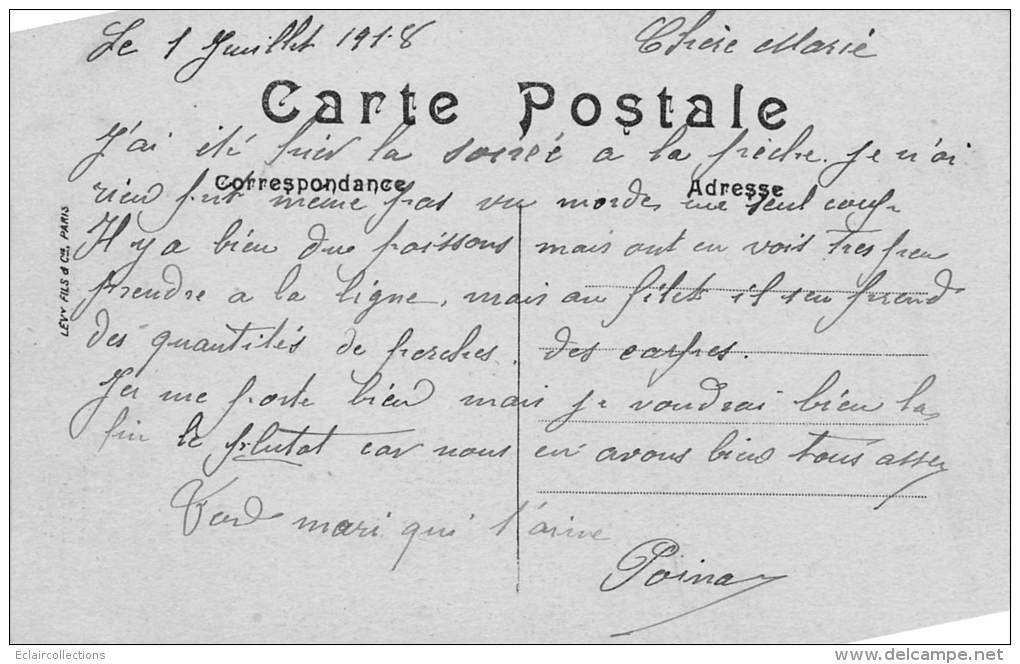 Le 1 Juillet 1918 Chère Marie
Carte Postale
J'ai été hier la soirée a la pèche. je n'ai
Correspondance Adresse
rien prit meme pas vu mordre une seul coup
Il y a bien due poissons mais ont en vois tres peu
prendre a la ligne, mais au filet il sen prend
des quantités de perches, des carpes.
Je me porte bien mais je voudrai bien la
fin le plutot car nous en avons bien tous assez
Ton mari qui t'aime
LEVY FILS & Cie, PARIS
Eclaircollections
www.delcampe.net